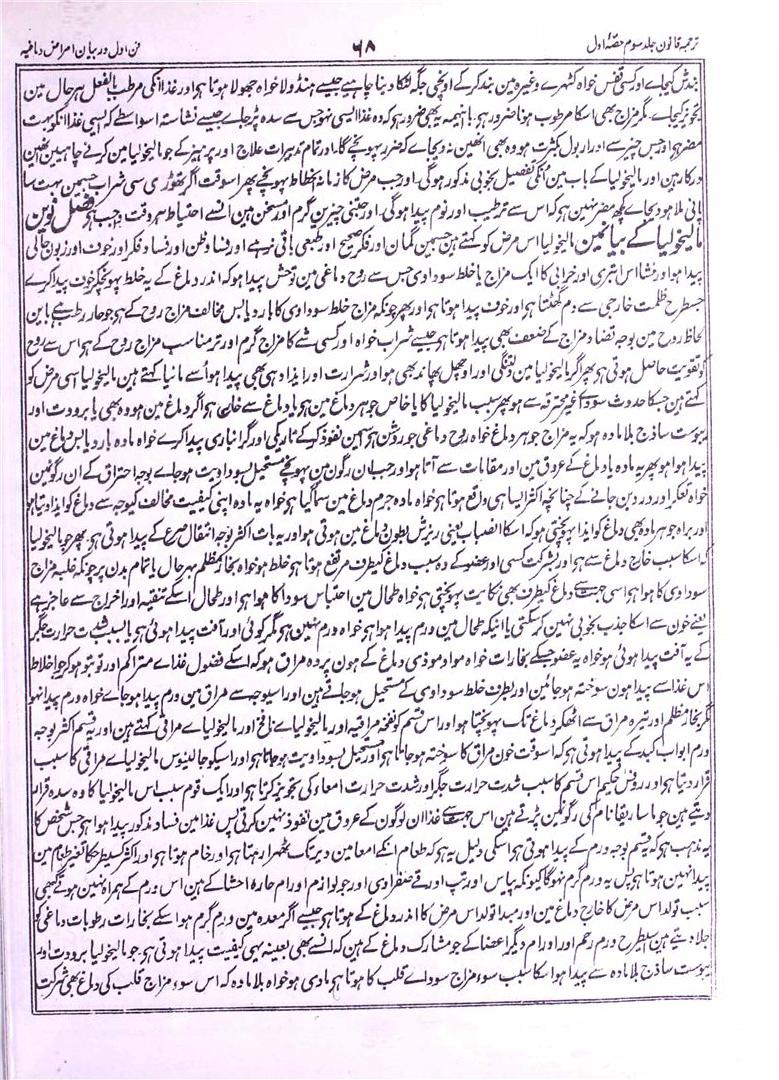 ترجمہ قانون جلد سوم حصۂ اول
۶۸
فن اول در بیان امراض دماغیہ
بندش کیجاے اور کسی قفس خواہ کٹہرے وغیرہ مین بند کر کے اونچی جگہ لٹکا دینا چاہیے جیسے ہنڈولا خواہ جھولا ہوتا ہے اور غذا انکی مرطب بالفعل ہر حال مین
تجویز کیجاے۔ مگر مزاج بھی اسکا مرطوب ہونا ضرور ہی۔ باینہمہ یہ بھی ضرور ہو کہ وہ غذا ایسی نہو جس سے سدہ پڑ جاے جیسے نشاستہ اسواسطے کہ ایسی غذا انکو بہت
مضر ہی اور جس چیز سے ادرار بول بکثرت ہو وہ بھی انھین نہ دیجاے کہ ضرر پہونچے گا۔ اور تمام تدبیرات علاج اور پرہیز کے جو مالیخولیا مین کرنے چاہئین انھین
درکار ہین اور مالیخولیا کے باب مین انکی تفصیل بخوبی مذکور ہوگی۔ اور جب مرض کا زمانہ انحطاط پہونچے پھر اسوقت اگر تھوڑی سی شراب جسمین بہت سا
پانی ملا ہو دیجاے کچھ مضر نہین ہی کہ اس سے ترطیب اور نوم پیدا ہوگی۔ اور جتنی چیزین گرم اور مسخن ہین انسے احتیاط ہر وقت واجب ہی فصل نوین
مالیخولیا کے بیانمین مالیخولیا اس مرض کو کہتے ہین جسمین گمان اور فکر صحیح اور طبعی باقی نرہے اور فساد ظن اور فساد فکر اور خوف اور زبون حالی
پیدا ہو اور منشا اس ابتری اور خرابی کا ایک مزاج یا خلط سوداوی جس سے روح دماغی مین توحش پیدا ہو کہ اندر دماغ کے یہ خلط پہونچکر خوف پیدا کرے
جسطرح ظلمت خارجی سے دم گھٹتا ہو اور خوف پیدا ہوتا ہو اور پھر چونکہ مزاج خلط سوداوی کا بارد یابس مخالف مزاج روح کے ہو جو حار رطب ہے باین
لحاظ روح مین بوجہ تضاد مزاج کے ضعف بھی پیدا ہوتا ہو جیسے شراب خواہ اور کسی شے کا مزاج گرم اور تر مناسب مزاج روح کے ہو اس سے روح
کو تقویت حاصل ہوتی ہی پھر اگر مالیخولیا مین دلتنگی اور اوچھل پھاند بھی ہو اور شرارت اور ایذا دہی بھی پیدا ہو اُسے مانیا کہتے ہین مالیخولیا اسی مرض کو
کہتے ہین جسکا حدوث سوداے غیر محترقہ سے ہو پھر سبب مالیخولیا کا یا خاص جوہر دماغ مین ہو یا دماغ سے خارج ہو اگر دماغ مین ہو وہ بھی یا برودت اور
یبوست ساذج بلا مادہ ہو کہ یہ مزاج جوہر دماغ خواہ روح دماغی جو روشن ہو اسمین نفوذ کر کے تاریکی اور گرانباری پیدا کرے خواہ مادہ بارد یابس دماغ مین
پیدا ہوا ہو پھر یہ مادہ یا دماغ کے عروق مین اور مقامات سے آتا ہو اور جب ان رگون مین پہونچے مستحیل بسوداویت ہو جاے بوجہ احتراق کے ان رگونمین
خواہ تعکر اور دردین جانے کے چنانچہ اکثر ایسا ہی واقع ہوتا ہو خواہ مادہ جرم دماغ مین سما گیا ہو خواہ یہ مادہ اپنی کیفیت مخالف کیوجہ سے دماغ کو ایذا دیتا ہو
اور براہ جوہر مادہ بھی دماغ کو ایذا پہونچتی ہو کہ اسکا انصباب یعنی ریزش بطون دماغ مین ہوتی ہو اور یہ بات اکثر بوجہ انتقال صرع کے پیدا ہوتی ہی پھر جو مالیخولیا
کہ اسکا سبب خارج دماغ سے ہو اور بشرکت کسی اور عضو کے وہ سبب دماغ کیطرف مرتفع ہوتا ہو خلط ہو خواہ بخار مظلم بہر حال یا تمام بدن پر چونکہ غلبہ مزاج
سوداوی کا ہوا ہو اسی جہت سے دماغ کیطرف بھی نکایت پہونچتی ہو خواہ طحال مین احتباس سودا کا ہوا ہو اور طحال اسکے تنقیہ اور اخراج سے عاجز ہے
یعنے خون سے اسکا جذب بخوبی نہین کر سکتی یا اینکہ طحال مین ورم پیدا ہوا ہو خواہ ورم نہین ہو مگر کوئی اور آفت پیدا ہوئی ہو یا بسبب شدت حرارت جگر
کے یہ آفت پیدا ہوئی ہو خواہ یہ عضو جسکے بخارات خواہ مواد موذی دماغ کے ہون پردہ مراق ہو کہ اسکے فضول غذاے متراکم اور تو بتو ہو کر جو اخلاط
اس غذا سے پیدا ہون سوختہ ہو جائین اور بطرف خلط سوداوی کے مستحیل ہو جاتے ہین اور اسیوجہ سے مراق مین ورم پیدا ہو جاے خواہ ورم پیدا نہو
مگر بخار مظلم اور تیرہ مراق سے اٹھکر دماغ تک پہونچتا ہو اور اس قسم کو نفخہ مراقیہ اور مالیخولیاے نافخ اور مالیخولیاے مراقی کہتے ہین اور یہ قسم اکثر بوجہ
ورم ابواب کبد کے پیدا ہوتی ہی کہ اسوقت خون مراق کا سوختہ ہو جاتا ہو اور مستحیل بسوداویت ہو جاتا ہو اور اسیکو جالینوس مالیخولیاے مراقی کا سبب
قرار دیتا ہو اور روفس حکیم اس قسم کا سبب شدت حرارت جگر اور شدت حرارت امعاء کی تجویز کرتا ہو اور ایک قوم سبب اس مالیخولیا کا وہ سدہ قرار
دیتے ہین جو ماساریقا نام کی رگونمین پڑتے ہین اس جہت سے غذا ان لوگون کے عروق مین نفوذ نہین کرتی پس غذا مین فساد مذکور پیدا ہوا ہو جس شخص کا
یہ مذہب ہو کہ یہ قسم بوجہ ورم کے پیدا ہوتی ہو اسکی دلیل یہ ہو کہ طعام انکے امعا مین دیر تک ٹھہرا رہتا ہو اور خام ہوتا ہو اور اکثر کسیطرحکا تغیر طعام مین
پیدا نہین ہوتا ہو پس یہ ورم گرم نہو گا کیونکہ پیاس اور تپ اور قے صفراوی اور جو لوازم اورام حارہ احشا کے ہین اس ورم کے ہمراہ نہین ہوتے کبھی
سبب تولد اس مرض کا خارج دماغ مین اور مبدا تولد اس مرض کا اندر دماغ کے ہوتا ہو جیسے اگر معدہ مین ورم گرم ہو اسکے بخارات رطوبات دماغی کو
جلا دیتے ہین اسیطرح ورم رحم اور اورام دیگر اعضا کے جو مشارک دماغ کے ہین کہ انسے بھی بعینہ یہی کیفیت پیدا ہوتی ہی جو مالیخولیا برودت اور
یبوست ساذج بلا مادہ سے پیدا ہو اسکا سبب سوء مزاج سوداے قلب کا ہوتا ہو مادی ہو خواہ بلا مادہ کہ اس سوء مزاج قلب کی دماغ بھی شرکت